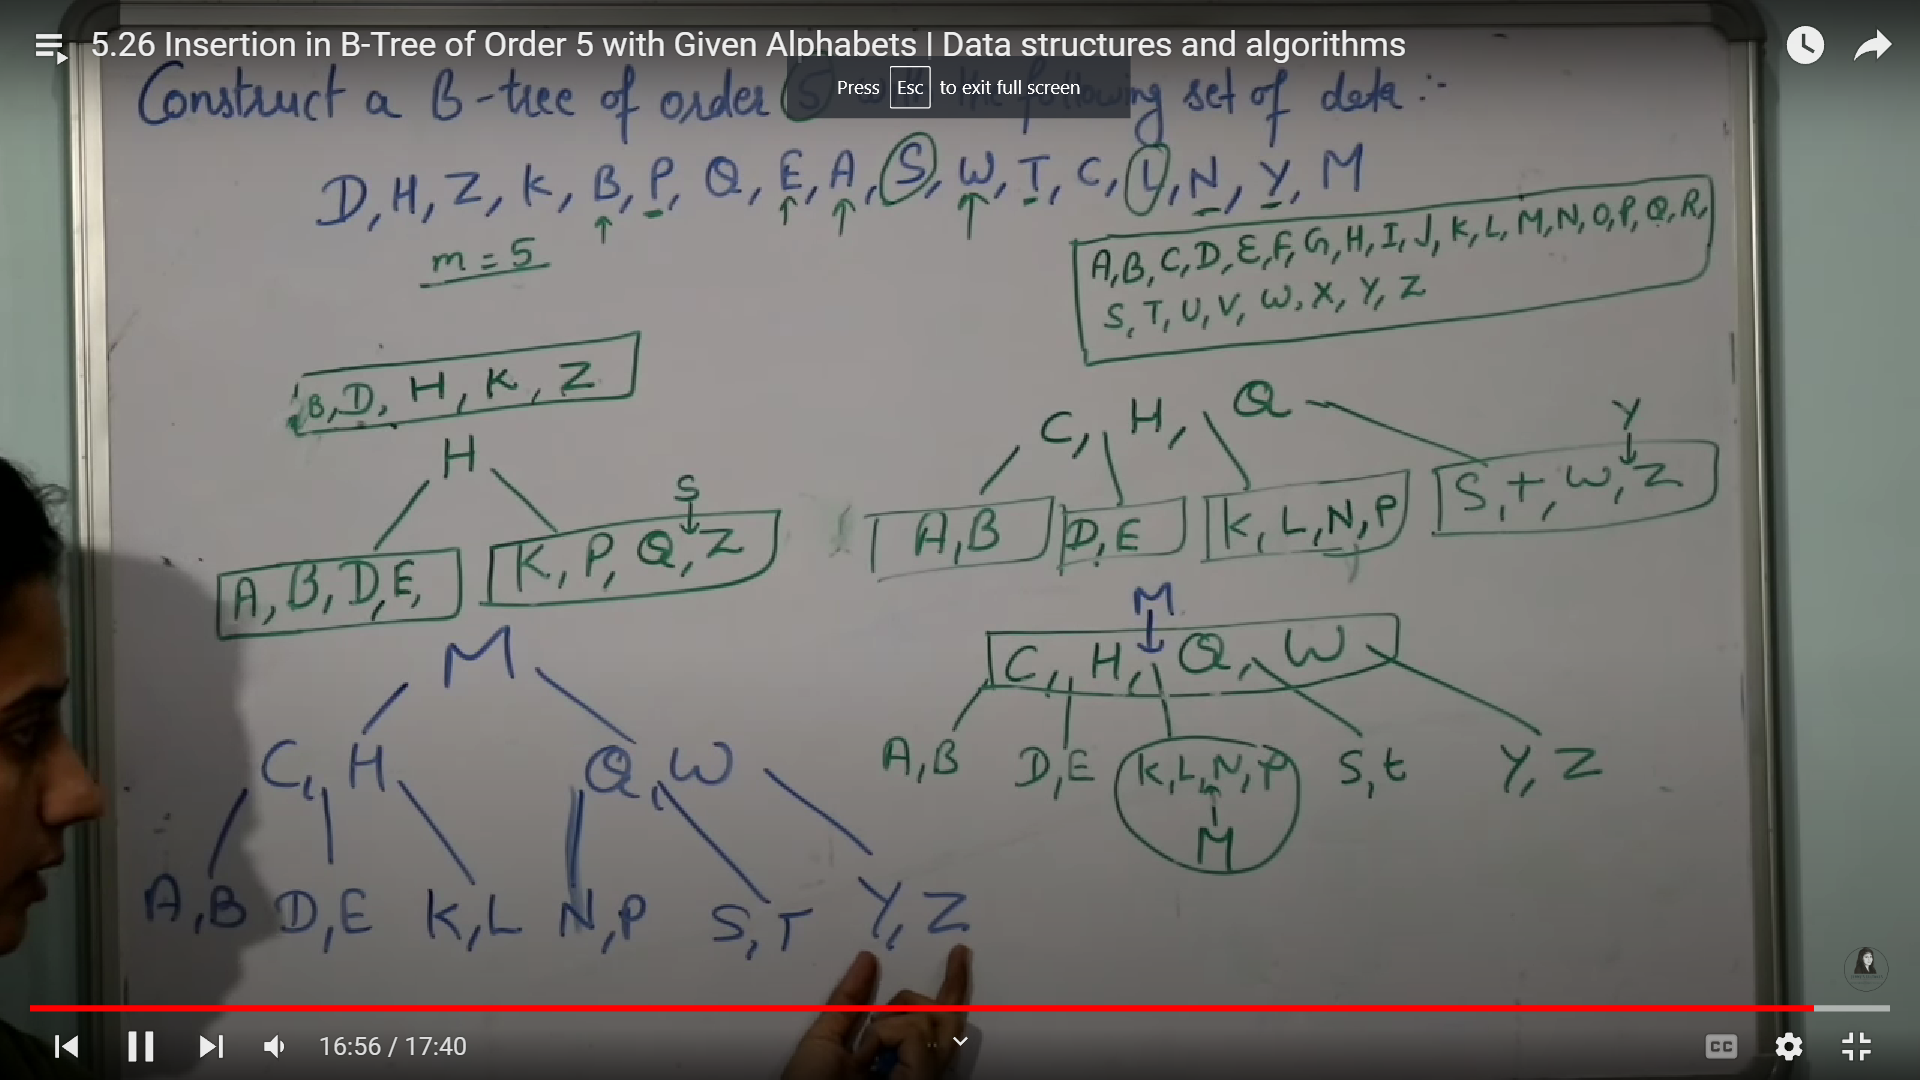 5.26 Insertion in B-Tree of Order 5 with Given Alphabets | Data structures and algorithms
Press Esc to exit full screen
Construct a B-tree of order 5 with the following set of data :-
D, H, Z, K, B, P, Q, E, A, S, W, T, C, L, N, Y, M
m = 5
A, B, C, D, E, F, G, H, I, J, K, L, M, N, O, P, Q, R,
S, T, U, V, W, X, Y, Z
B, D, H, K, Z
H
S
A, B, D, E,
K, P, Q, Z
C, H, Q
Y
A, B
D, E
K, L, N, P
S, t, W, Z
M
C, H, Q, W
A, B
D, E
K, L, N, P
S, t
Y, Z
M
M
C, H
Q, W
A, B
D, E
K, L
N, P
S, T
Y, Z
16:56 / 17:40
CC